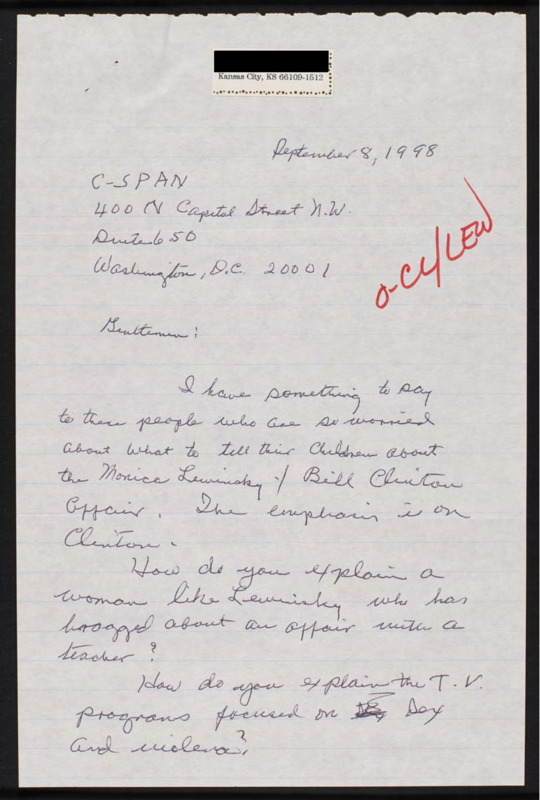 Kansas City, KS 66109-1512
September 8, 1998
C-SPAN
400 N Capital Street N.W.
Suite 650
Washington, D.C. 20001
O-CL/LEW
Gentlemen:
I have something to say
to these people who are so worried
about what to tell their children about
the Monica Lewinsky / Bill Clinton
affair. The emphasis is on
Clinton.
How do you explain a
woman like Lewinsky who has
bragged about an affair with a
teacher?
How do you explain the T.V.
programs focused on Sex
and violence?